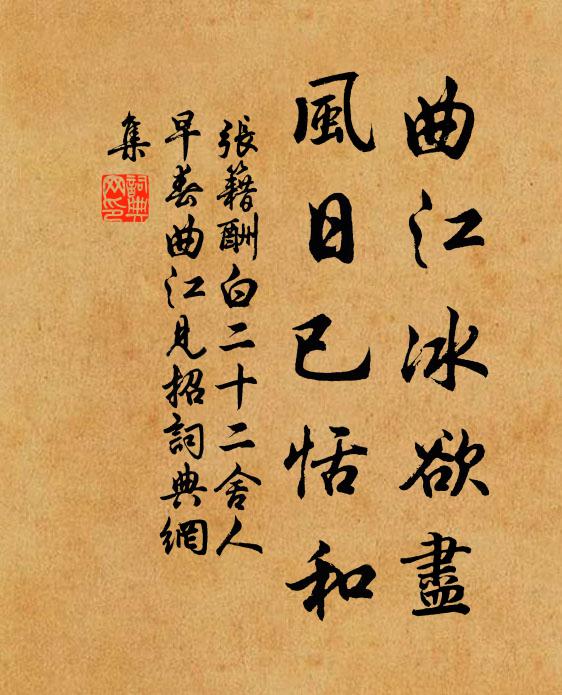 曲江冰欲盡
風日已恬和
張籍酬白二十二舍人
早春曲江見招詞典網
集
詞典
网印